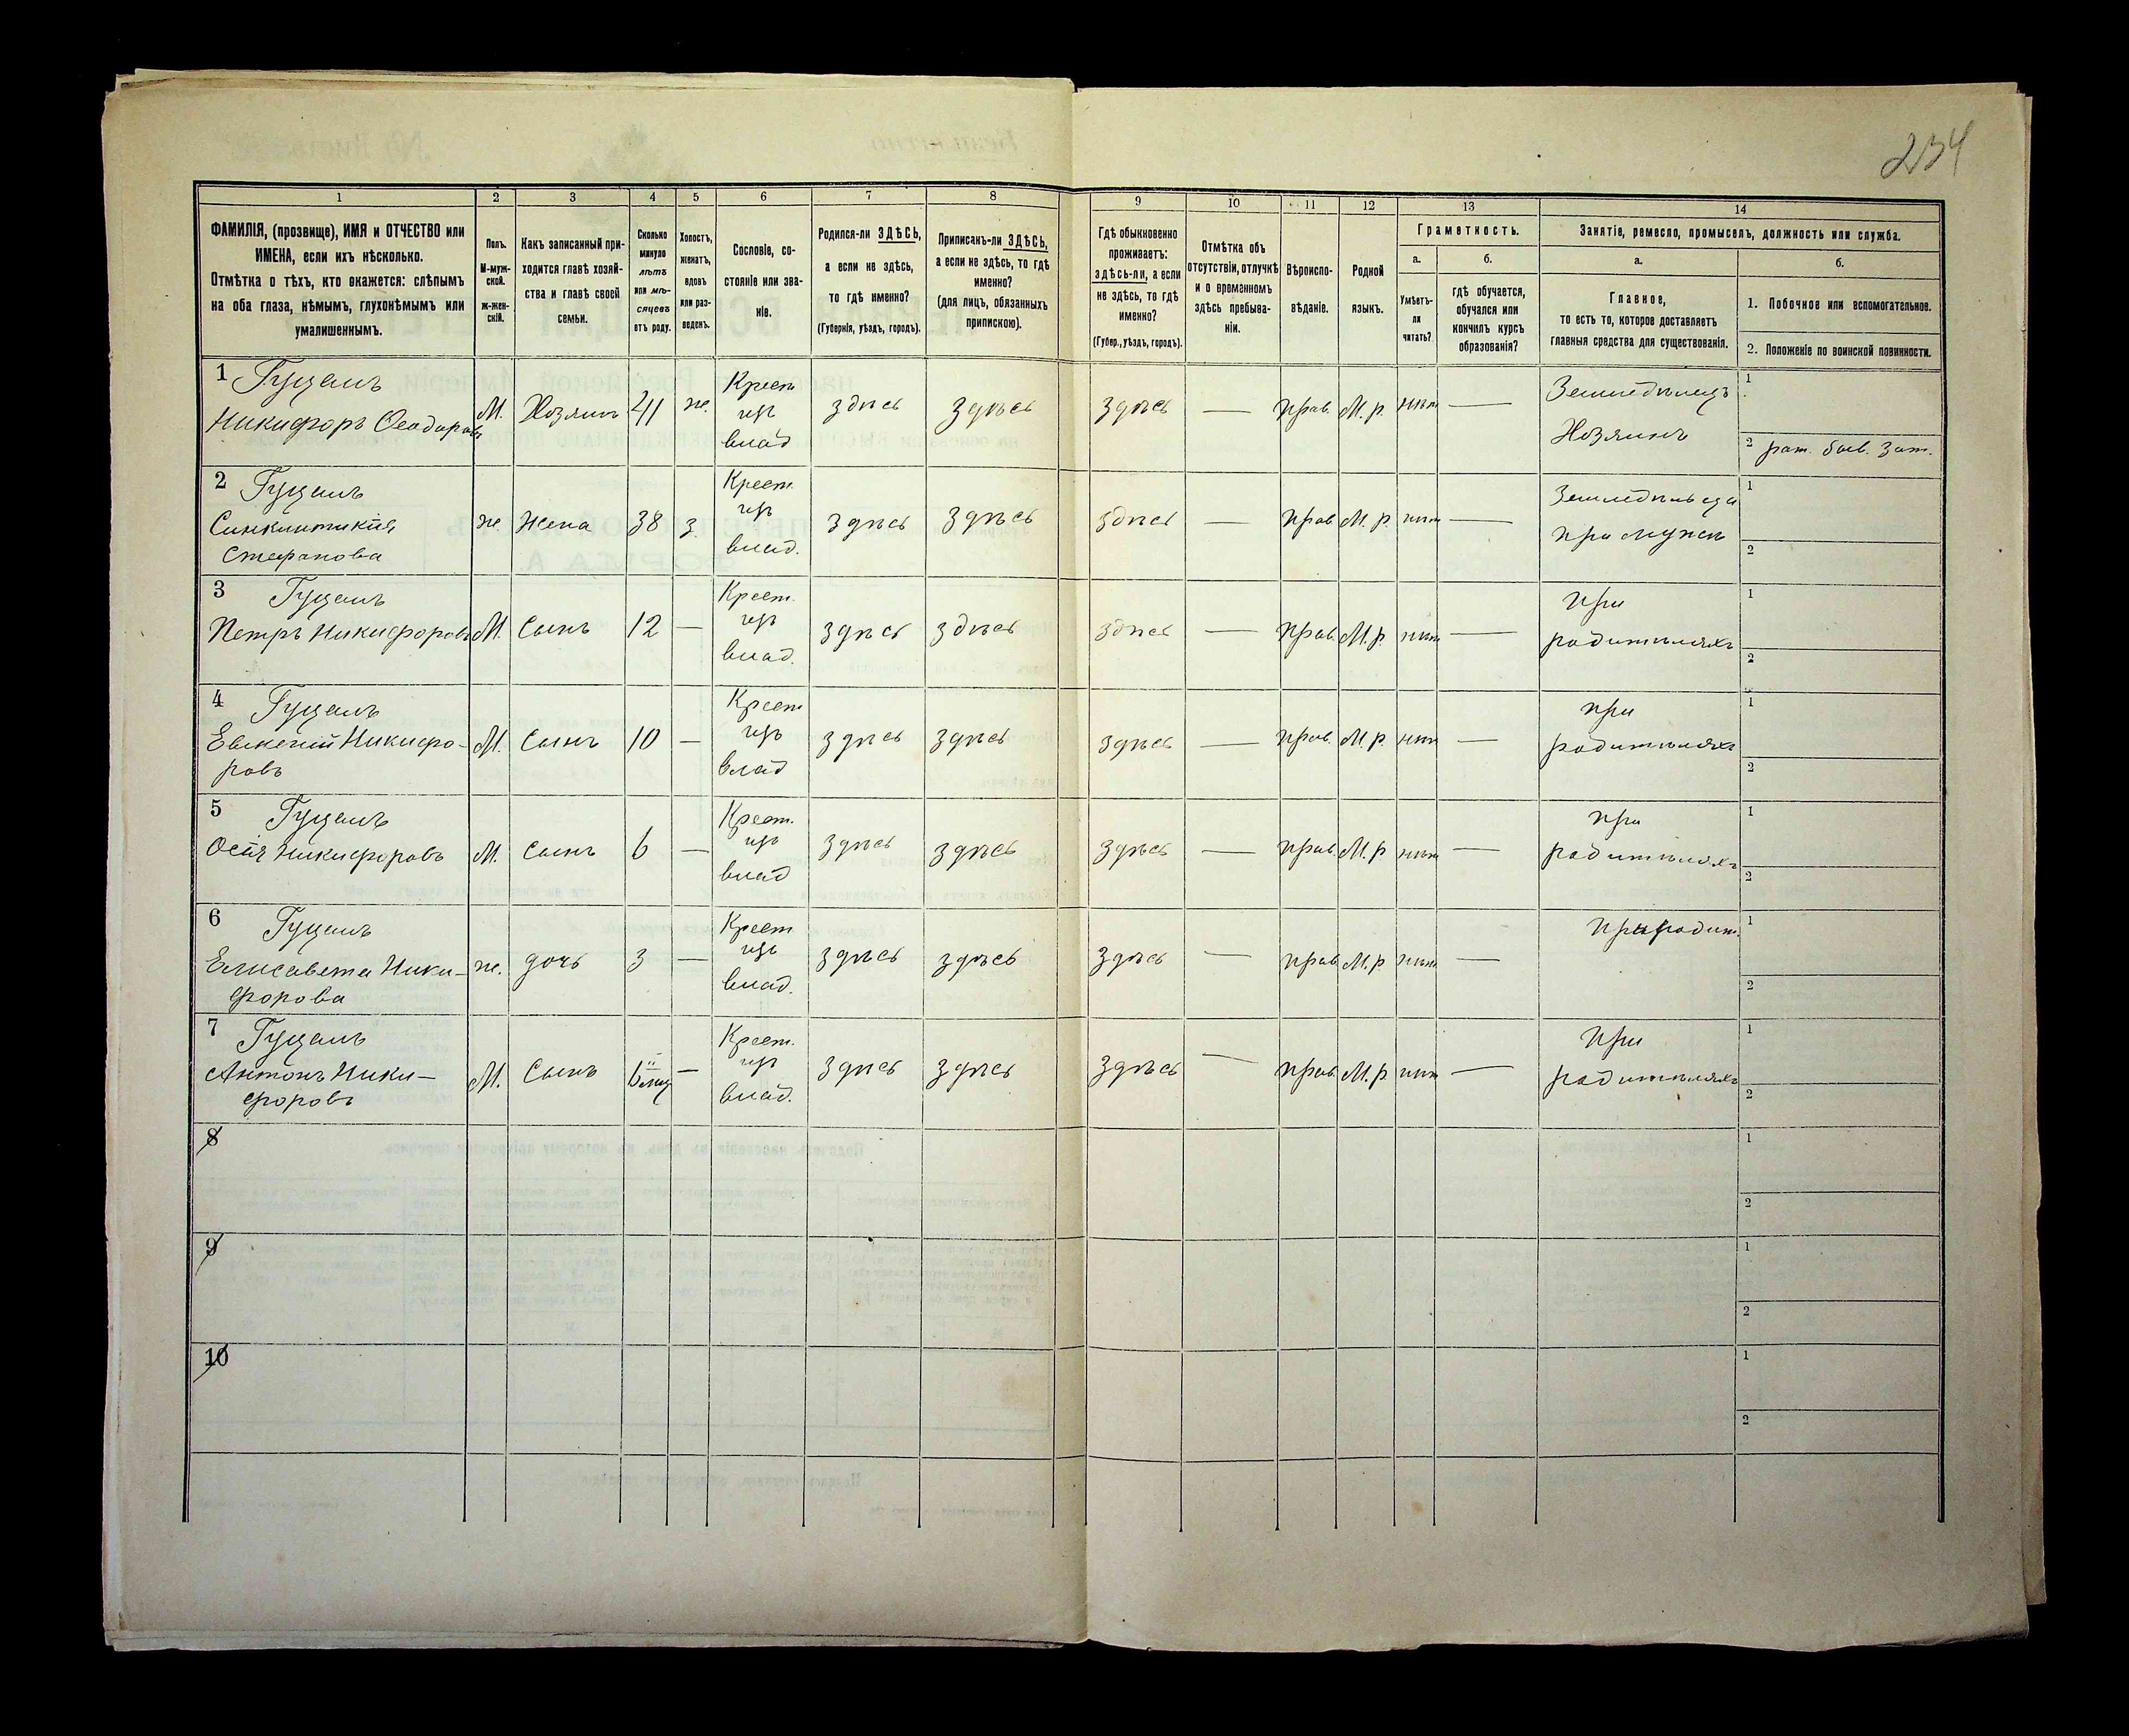 234
1 2 3 4 5 6 7 8 9 10 11 12 13 14
ФАМИЛІЯ, (прозвище), ИМЯ и ОТЧЕСТВО или
ИМЕНА, если ихъ нѣсколько.
Отмѣтка о тѣхъ, кто окажется: слѣпымъ
на оба глаза, нѣмымъ, глухонѣмымъ или
умалишеннымъ.
Полъ.
М-муж-
ской.
ж-жен-
скій.
Какъ записанный при-
ходится главѣ хозяй-
ства и главѣ своей
семьи.
Сколько
минуло
лѣтъ
или мѣ-
сяцевъ
отъ роду.
Холостъ,
женатъ,
вдовъ
или раз-
веденъ.
Сословіе, со-
стояніе или зва-
ніе.
Родился-ли ЗДѢСЬ,
а если не здѣсь,
то гдѣ именно?
(Губернія, уѣздъ, городъ).
Приписанъ-ли ЗДѢСЬ,
а если не здѣсь, то гдѣ
именно?
(для лицъ, обязанныхъ
припискою).
Гдѣ обыкновенно
проживаетъ:
здѣсь-ли, а если
не здѣсь, то гдѣ
именно?
(Губер., уѣздъ, городъ).
Отмѣтка объ
отсутствіи, отлучкѣ
и о временномъ
здѣсь пребыва-
ніи.
Вѣроиспо-
вѣданіе.
Родной
языкъ.
Грамотность.
а.
Умѣетъ-
ли
читать?
б.
гдѣ обучается,
обучался или
кончилъ курсъ
образованія?
Занятіе, ремесло, промыселъ, должность или служба.
а.
Главное,
то есть то, которое доставляетъ
главныя средства для существованія.
б.
1. Побочное или вспомогательное.
2. Положеніе по воинской повинности.
1 Гуцалъ
Никифоръ Ѳеодоровъ
М.
Хозяинъ
41
ж.
Крест
изъ
влад
здѣсь
здѣсь
здѣсь
—
прав.
М. р.
нѣт
—
Земледѣлецъ
Хозяинъ
1
2 рат. Зап.
2 Гуцалъ
Синклитикія
Стефанова
ж.
Жена
38
з.
Крест.
изъ
влад.
здѣсь
здѣсь
здѣсь
—
прав.
М. р.
нѣт
—
при мужѣ
1
2
3 Гуцалъ
Петръ Никифоровъ
М.
Сынъ
12
—
Крест.
изъ
влад.
здѣсь
здѣсь
здѣсь
—
прав.
М. р.
нѣт
—
при
родителяхъ
1
2
4 Гуцалъ
Евгеній Никифо-
ровъ
М.
Сынъ
10
—
Крест
изъ
влад
здѣсь
здѣсь
здѣсь
—
прав.
М. р.
нѣт
—
при
родителяхъ
1
2
5 Гуцалъ
Осія Никифоровъ
М.
Сынъ
6
—
Крест.
изъ
влад
здѣсь
здѣсь
здѣсь
—
прав.
М. р
нѣт
—
при
родителяхъ
1
2
6 Гуцалъ
Елисавета Ники-
форова
ж.
дочь
3
—
Крест
изъ
влад.
здѣсь
здѣсь
здѣсь
—
прав.
М. р
нѣт
—
при родит.
1
2
7 Гуцалъ
Антонъ Ники-
форовъ
М.
Сынъ
—
Крест.
изъ
влад.
здѣсь
здѣсь
здѣсь
—
прав.
М. р
нѣт
—
при
родителяхъ
1
2
8
1
2
9
1
2
10
1
2